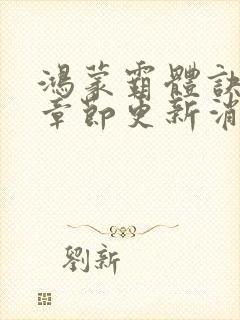 鴻蒙霸體訣
章節更新消
劉新